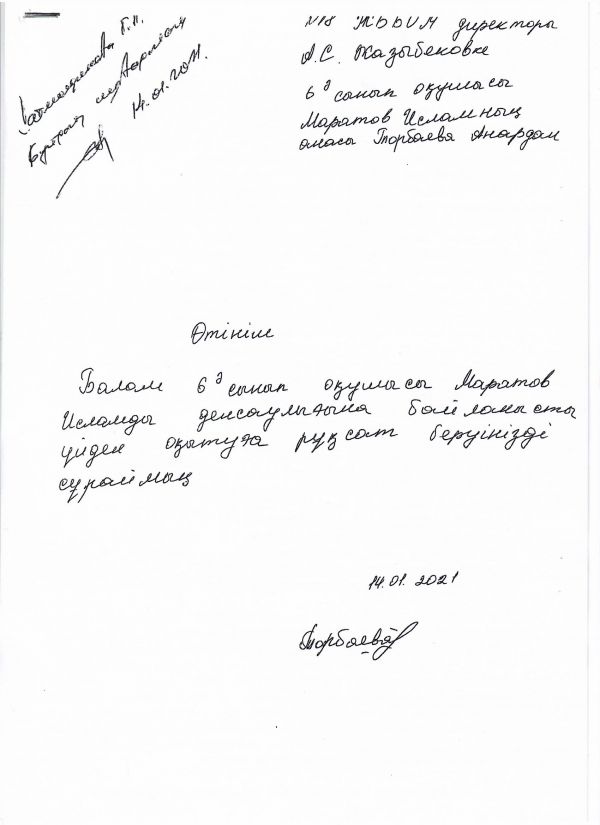 N18 ЖББОМ директоры
А.С. Жазыбековке
6 д сынып оқушысы
Маратов Исламның
анасы Торбаева Анардан
Б.П.
Бұйрық шығарылсын
14.01.2021.
Өтініш
Балам 6 д сынып оқушысы Маратов
Исламды денсаулығына байланысты
үйден оқытуға рұқсат беруіңізді
сұраймын
14.01.2021
Торбаева